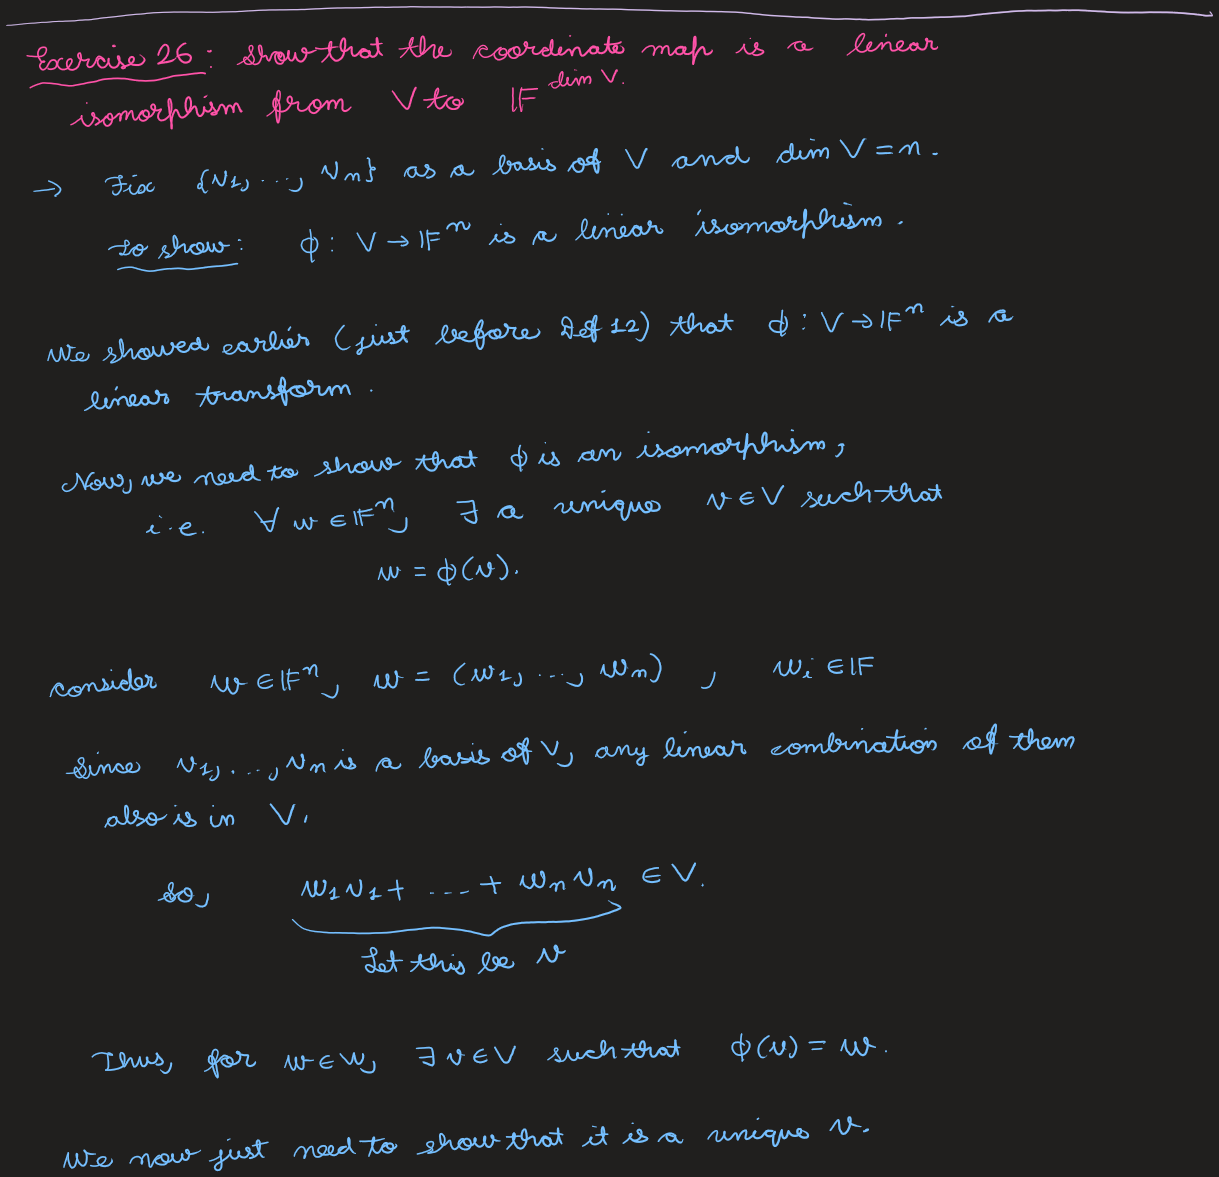 Exercise 26: Show that the coordinate map is a linear
isomorphism from V to 𝔽^dim V.
→ Fix {v₁, ..., vₙ} as a basis of V and dim V = n.
To show: ϕ: V → 𝔽ⁿ is a linear isomorphism.
We showed earlier (just before Def 12) that ϕ: V → 𝔽ⁿ is a
linear transform.
Now, we need to show that ϕ is an isomorphism,
i.e. ∀ w ∈ 𝔽ⁿ, ∃ a unique v ∈ V such that
w = ϕ(v).
Consider w ∈ 𝔽ⁿ, w = (w₁, ..., wₙ) , wᵢ ∈ 𝔽
Since v₁, ..., vₙ is a basis of V, any linear combination of them
also is in V.
So, w₁v₁ + ... + wₙvₙ ∈ V.
Let this be v
Thus, for w ∈ W, ∃ v ∈ V such that ϕ(v) = w.
We now just need to show that it is a unique v.